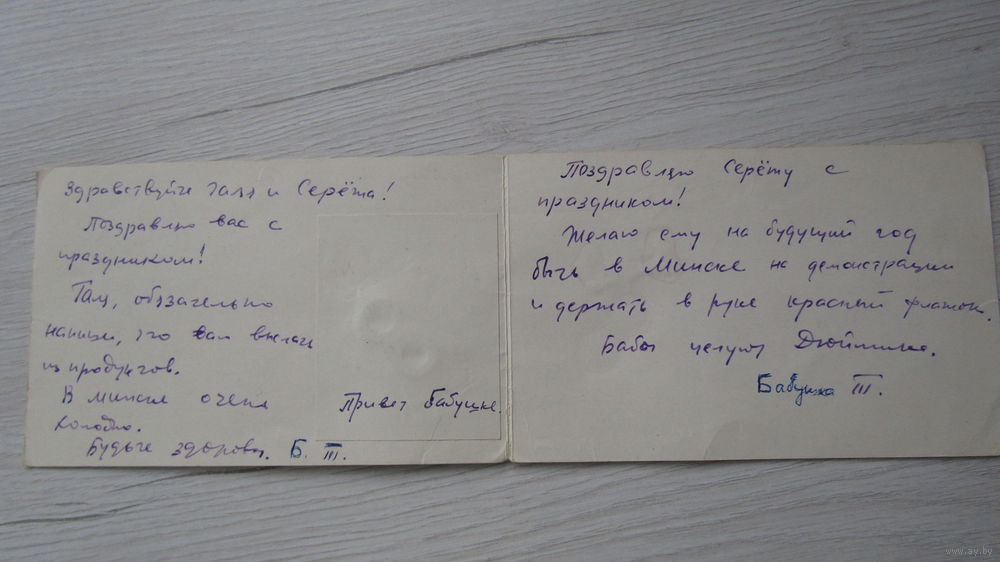 Здравствуйте Галя и Серёжа!
Поздравляю вас с
праздником!
Галя, обязательно
напиши, что вам выслать
из продуктов.
В Минске очень
холодно.
Будьте здоровы. Б. III.
Привет бабушке.
Поздравляю Серёжу с
праздником!
Желаю ему на будущий год
быть в Минске на демонстрации
и держать в руке красный флажок.
Бабы целуют
Бабушка III.
www.ay.by